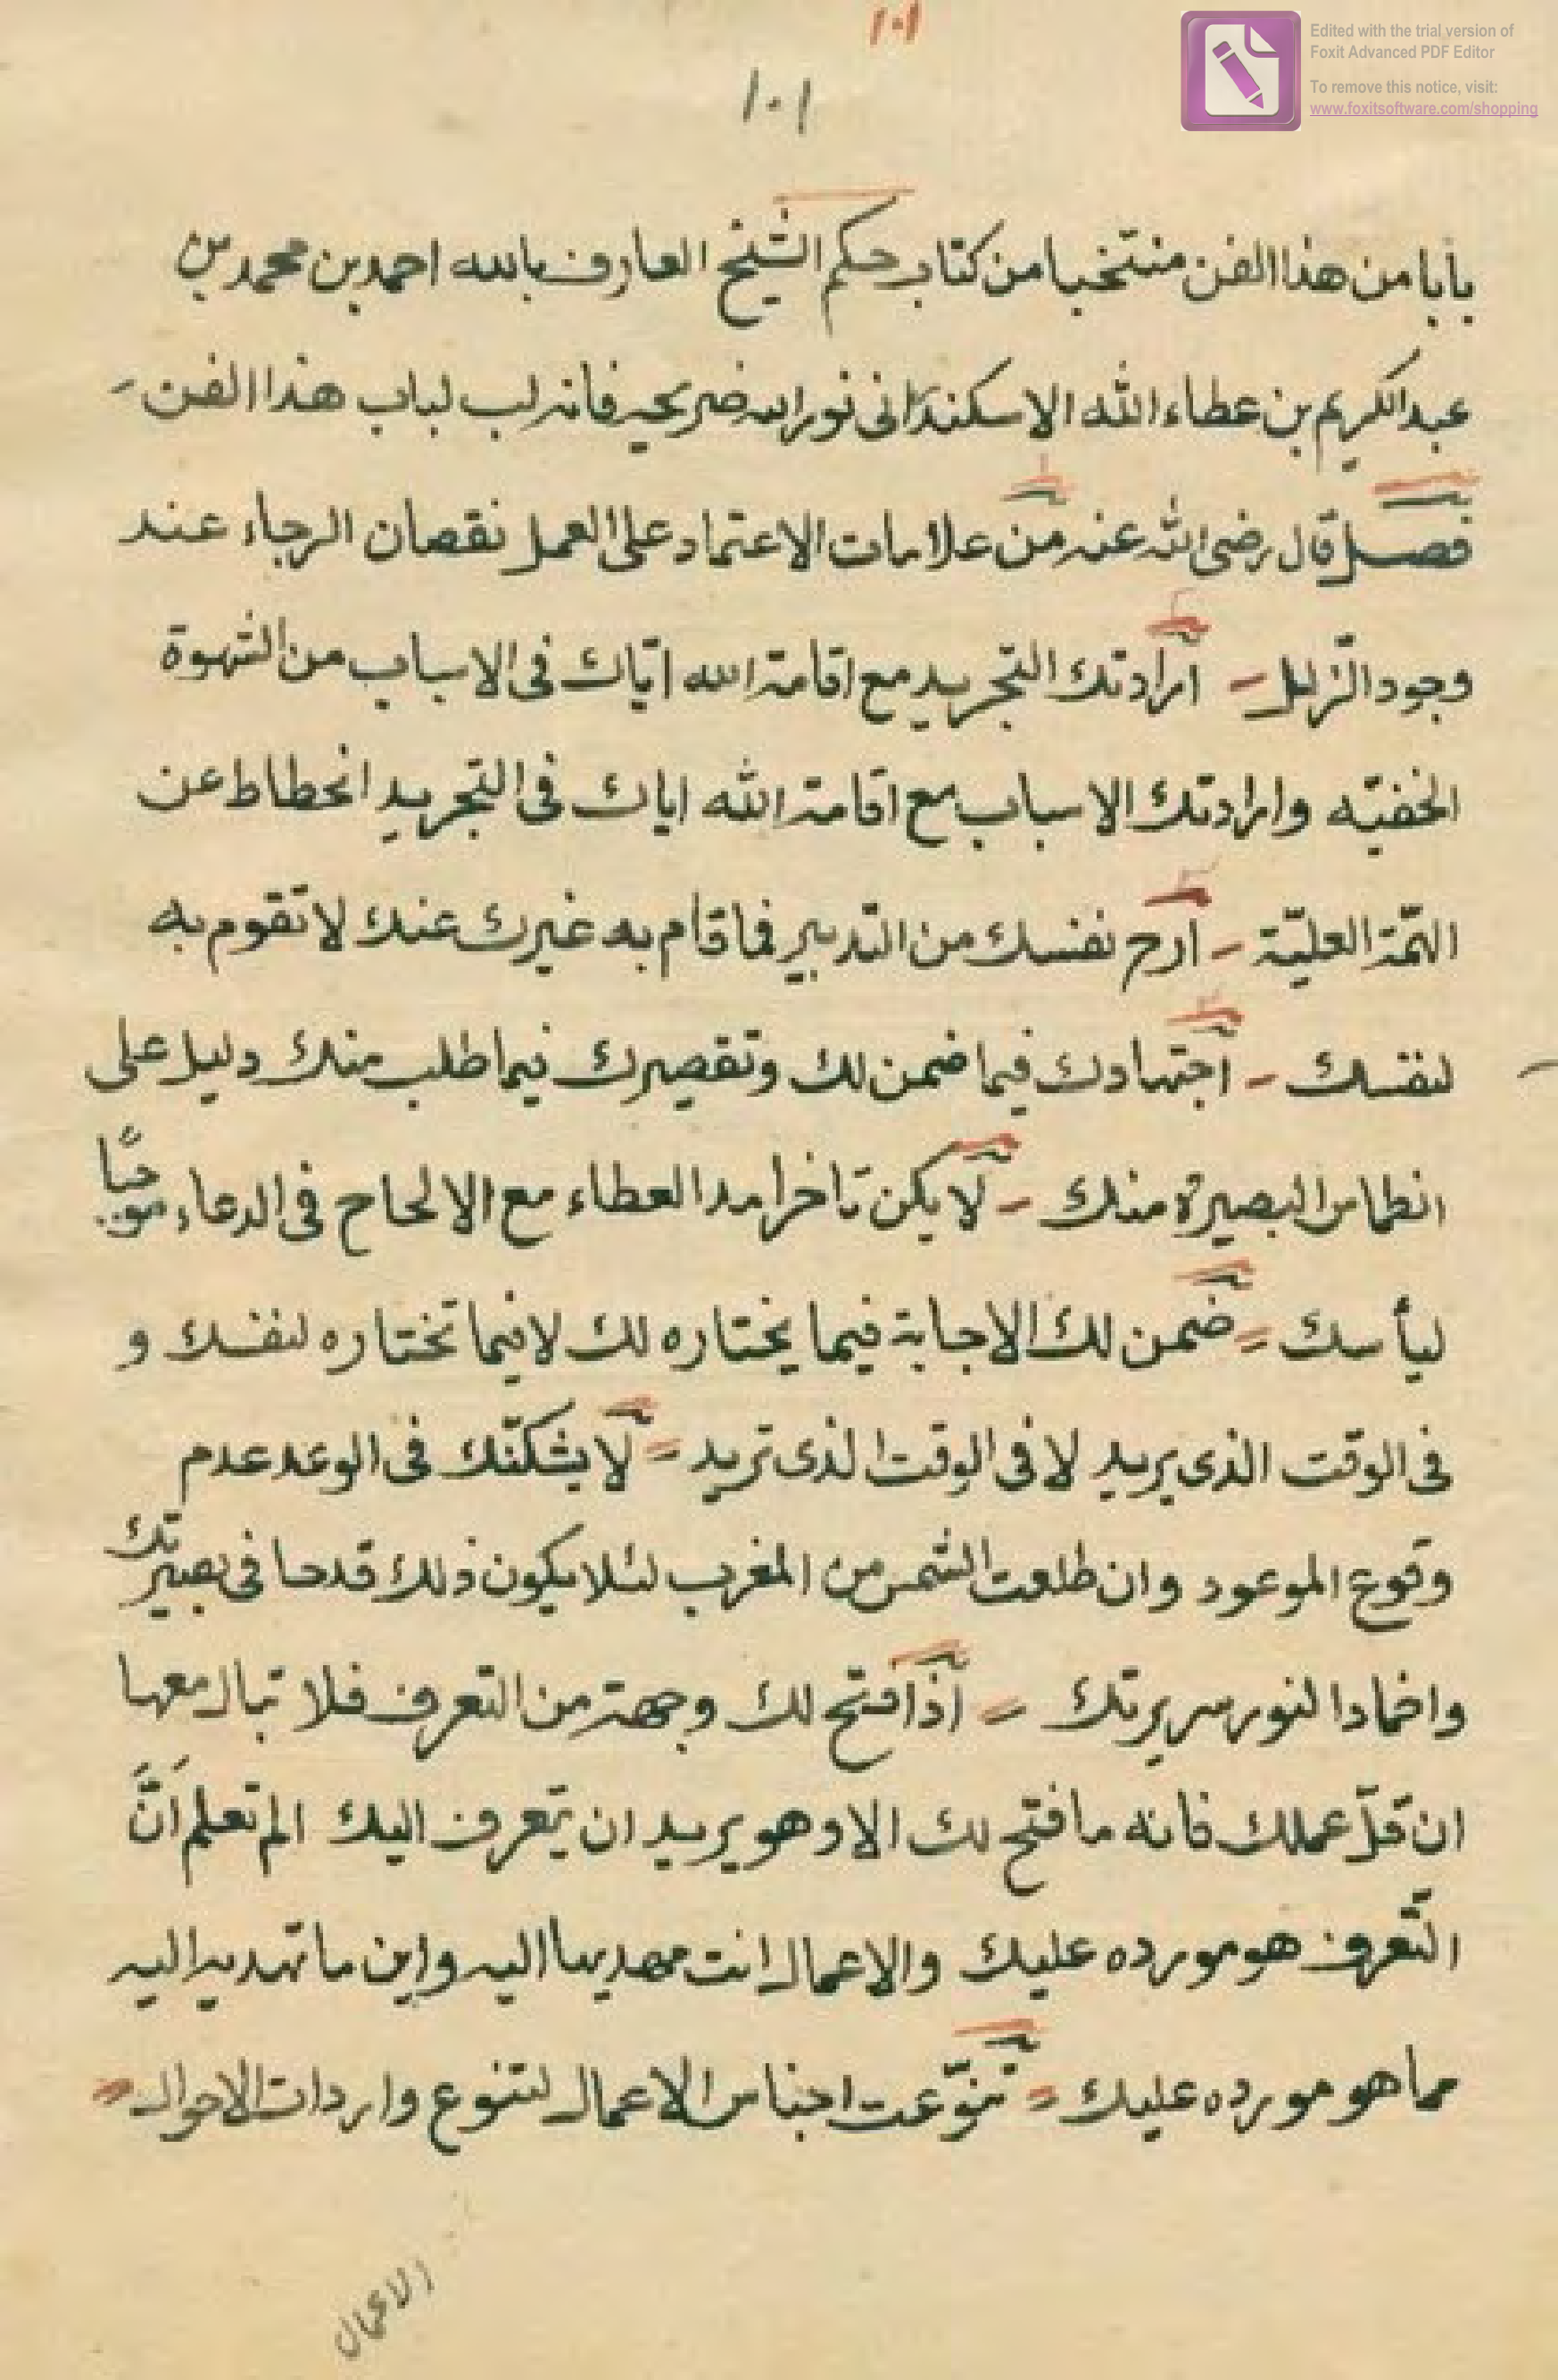 ١٠١
Edited with the trial version of
Foxit Advanced PDF Editor
To remove this notice, visit:
www.foxitsoftware.com/shopping
١٠١
بابا من هذا الفن منتخبا من كتاب حكم الشيخ العارف بالله احمد بن محمد بن
عبد الكريم بن عطاء الله الاسكندرانى نور الله ضريحه فانه لب لباب هذا الفن
فصل قال رضى الله عنه من علامات الاعتماد على العمل نقصان الرجاء عند
وجود الزلل ارادتك التجريد مع اقامة الله اياك فى الاسباب من الشهوة
الخفيّه وارادتك الاسباب مع اقامة الله اياك فى التجريد انحطاط عن
الهمّة العليّة أرح نفسك من التدبير فما قام به غيرك عنك لا تقوم به
لنفسك اجتهادك فيما ضمن لك وتقصيرك فيما طلب منك دليل على
انطماس البصيرة منك لا يكن تاخر امد العطاء مع الالحاح فى الدعاء موجبًا
ليأسك ضمن لك الاجابة فيما يختاره لك لا فيما تختاره لنفسك و
فى الوقت الذى يريد لا فى الوقت الذى تريد لا يشكّنّك فى الوعد عدم
وقوع الموعود وان طلعت الشمس من المغرب لئلا يكون ذلك قدحا فى بصيرتك
واخمادا لنور سريرتك اذا فتح لك وجهة من التعرف فلا تبال معها
ان قلّ عملك فانه ما فتح لك الا وهو يريد ان يتعرف اليك الم تعلم اَنَّ
التّعرف هو مورده عليك والاعمال انت مهديها اليه واين ما تهديه اليه
مما هو مورده عليك تنوّعت اجناس الاعمال لتنوع واردات الاحوال
الاعمال